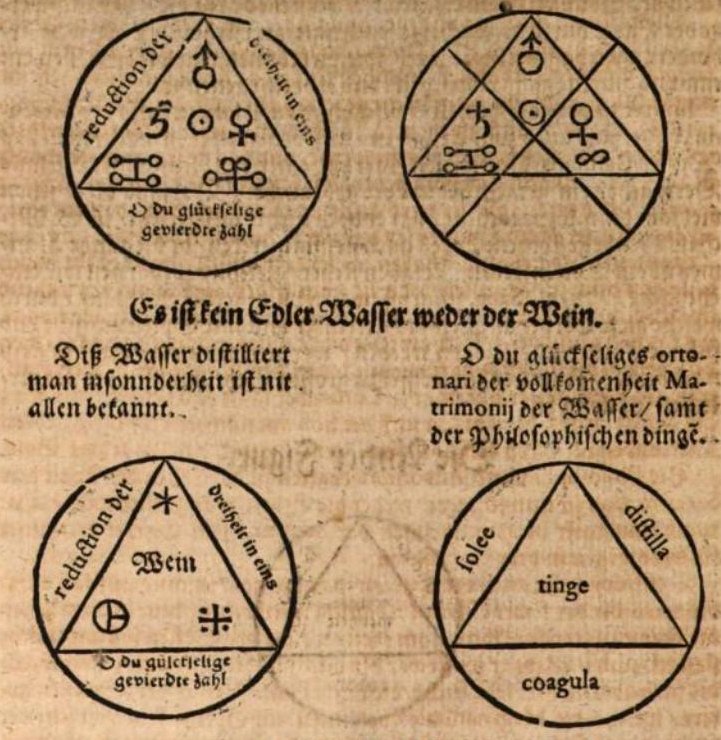 reduction der
dreiheit in eins
O du glückselige
gevierdte zahl
Es ist kein Edler Wasser weder der Wein.
Diß Wasser distilliert
man insonnderheit ist nit
allen bekannt.
O du glückseliges orto-
nari der vollkom̃enheit Ma-
trimonij der Wasser/ sam̃t
der Philosophischen dingẽ.
reduction der
dreiheit in eins
Wein
O du gülckselige
gevierdte zahl
solee
distilla
tinge
coagula